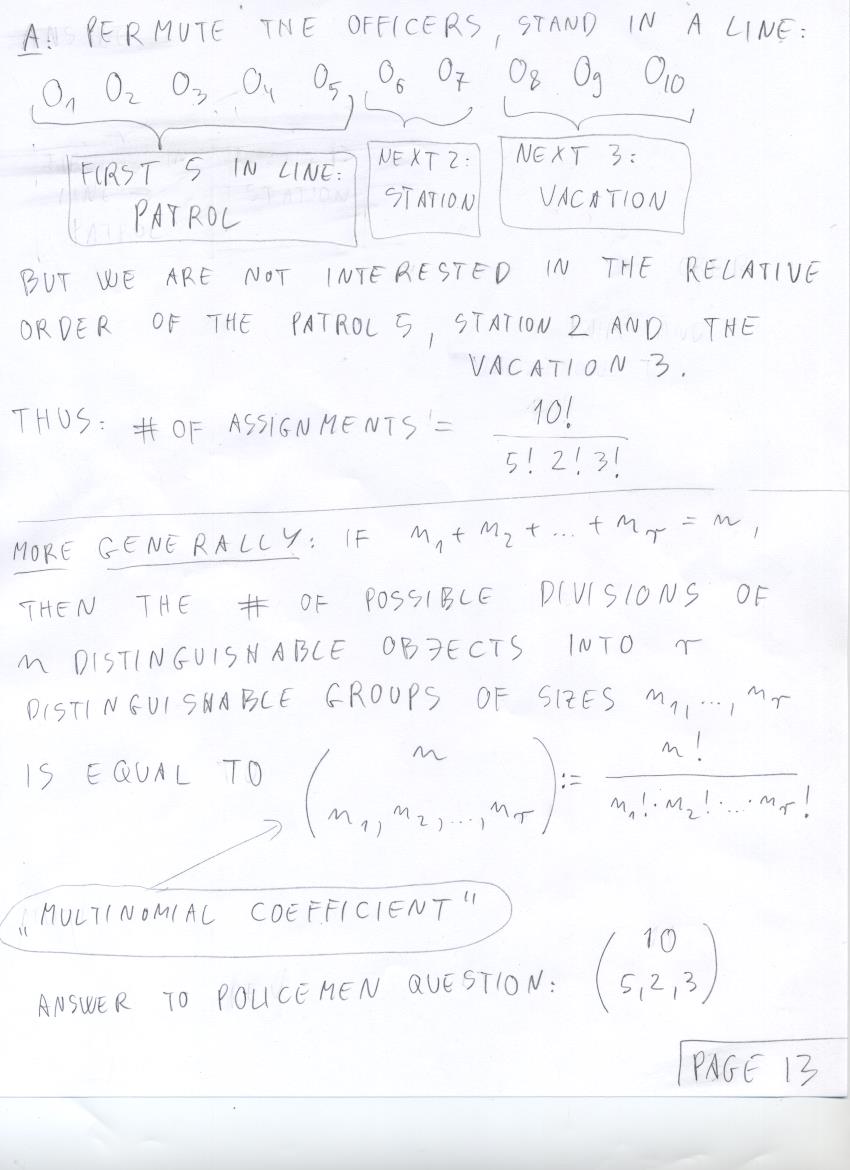 A: PERMUTE THE OFFICERS, STAND IN A LINE:
O₁ O₂ O₃ O₄ O₅ O₆ O₇ O₈ O₉ O₁₀
FIRST 5 IN LINE:
PATROL
NEXT 2:
STATION
NEXT 3:
VACATION
BUT WE ARE NOT INTERESTED IN THE RELATIVE
ORDER OF THE PATROL 5, STATION 2 AND THE
VACATION 3.
THUS: # OF ASSIGNMENTS = 10! / 5! 2! 3!
MORE GENERALLY: IF n₁ + n₂ + ... + nᵣ = n,
THEN THE # OF POSSIBLE DIVISIONS OF
n DISTINGUISHABLE OBJECTS INTO r
DISTINGUISHABLE GROUPS OF SIZES n₁, ..., nᵣ
IS EQUAL TO (n / n₁, n₂, ..., nᵣ) := n! / n₁! · n₂! · ... · nᵣ!
„MULTINOMIAL COEFFICIENT"
ANSWER TO POLICEMEN QUESTION: (10 / 5, 2, 3)
PAGE 13